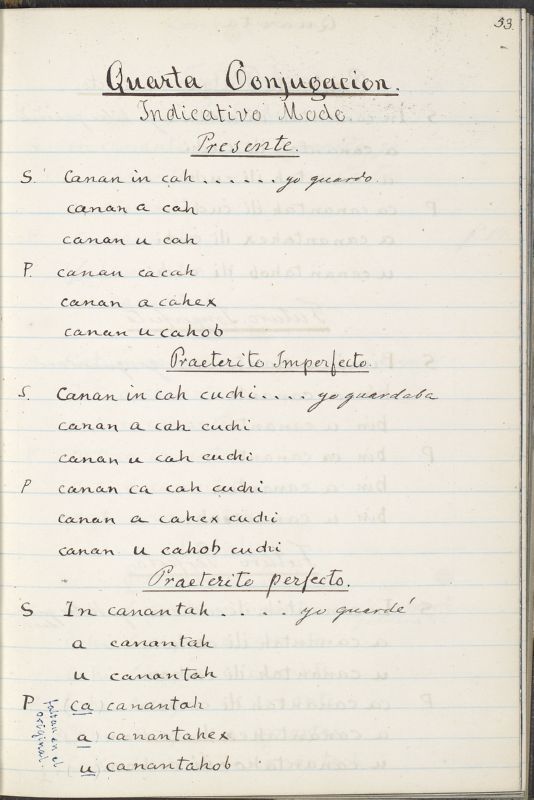 33.
Quarta Conjugacion.
Indicativo Modo
Presente.
S. Canan in cah . . . . . . yo guardo
canan a cah
canan u cah
P. canan ca cah
canan a cahex
canan u cahob
Praeterito Imperfecto.
S. Canan in cah cuchi . . . . yo guardaba
canan a cah cuchi
canan u cah cuchi
P canan ca cah cuchi
canan a cahex cuchi
canan u cahob cuchi
Praeterito perfecto.
S In canantah . . . . yo guardé
a canantah
u canantah
P ca canantah
a canantahex
u canantahob
faltan en el
original.